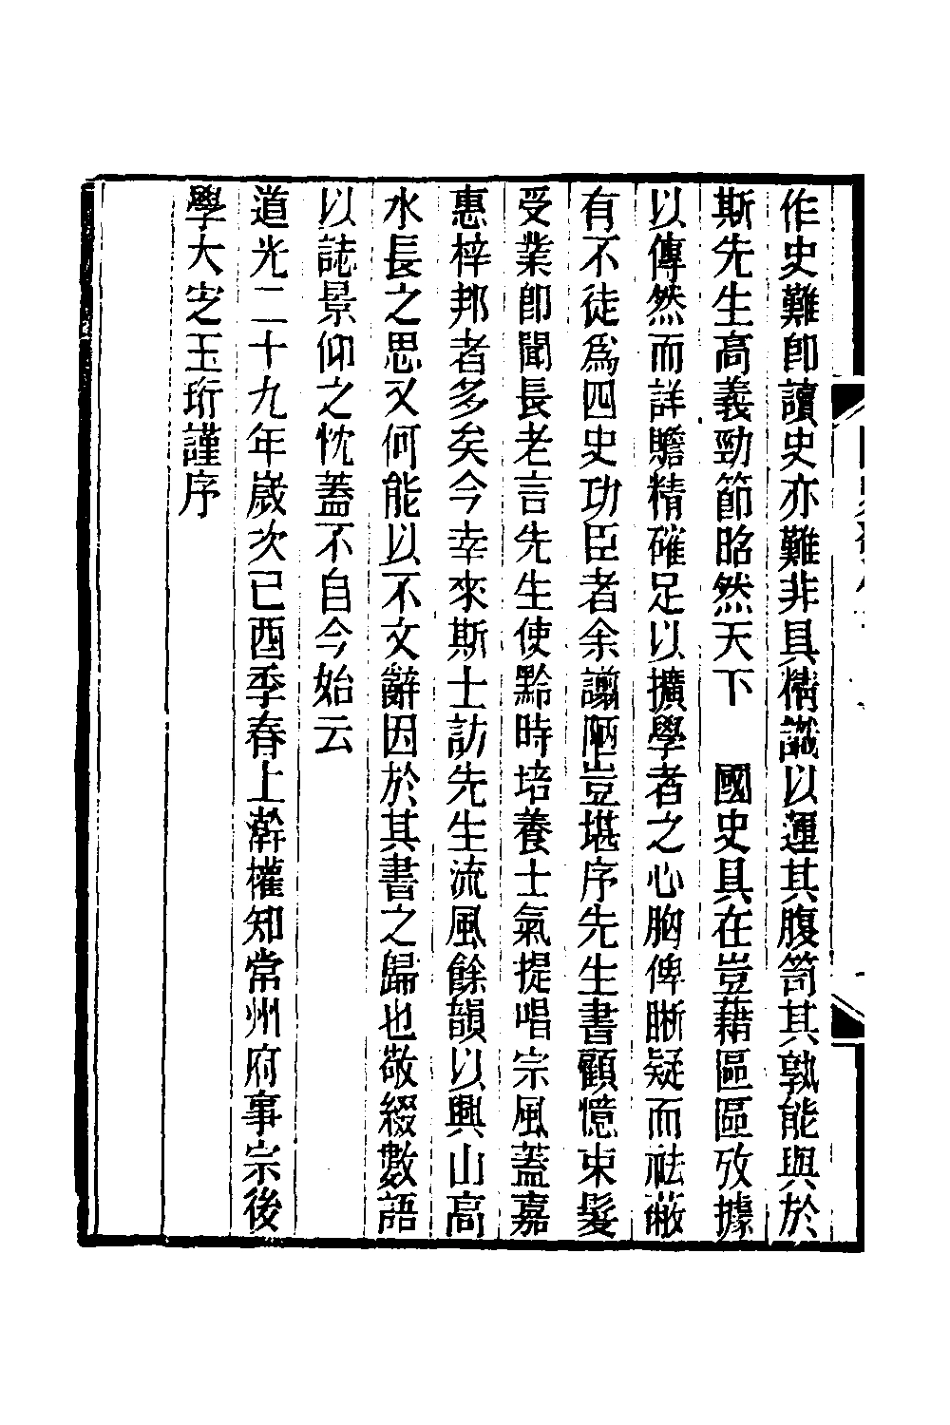 作史難卽讀史亦難非具精識以運其腹笥其孰能與於
斯先生高義勁節昭然天下　國史具在豈藉區區攷據
以傳然而詳贍精確足以擴學者之心胸俾晰疑而祛蔽
有不徒爲四史功臣者余譾陋豈堪序先生書顧憶束髮
受業卽聞長老言先生使黔時培養士氣提唱宗風蓋嘉
惠梓邦者多矣今幸來斯土訪先生流風餘韻以興山高
水長之思又何能以不文辭因於其書之歸也敬綴數語
以誌景仰之忱蓋不自今始云
道光二十九年歲次己酉季春上澣權知常州府事宗後
學大宖玉珩謹序